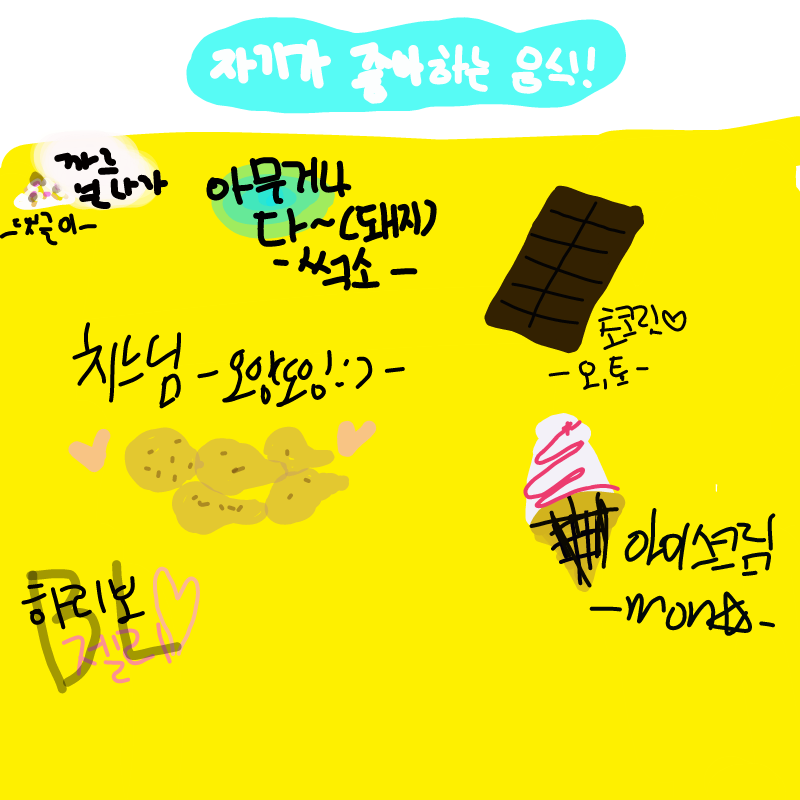 자기가 좋아하는 음식!!
까르
보나가
-댓글이-
아무거나
다~(돼지)
-쓱소-
초코릿♡
-오,토-
치느님 -오양또잉!:)-
아이스크림
-mon☆-
하리보
BL
젤리